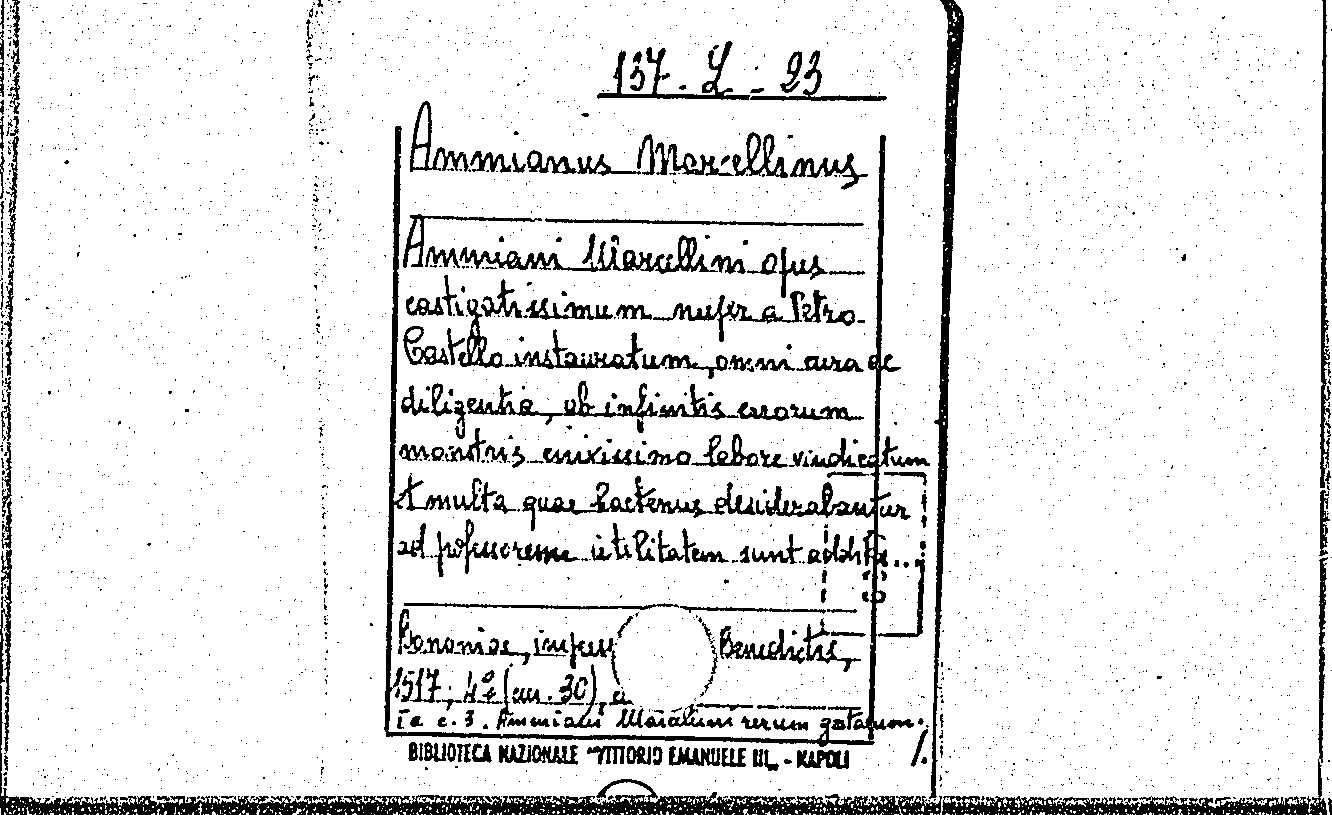 137. L. 23
Ammianus Marcellinus
Ammiani Marcellini opus
castigatissimum nuper a Petro
Castello instauratum, omni cura ac
diligentia, ab infinitis errorum
monstris enixissimo labore vindicatum
et multa quae hactenus desiderabantur
ad professorem utilitatem sunt addita...
Bononiae, Benedictis,
1517, 4º (cm. 30),
Ta c. 3. Ammiani Marcellini rerum gestarum.
BIBLIOTECA NAZIONALE "VITTORIO EMANUELE III" - NAPOLI
./.